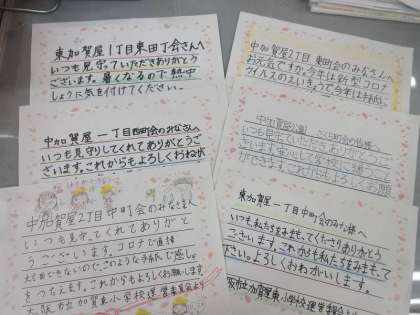 東加賀屋1丁目東町会さんへ
いつも見守っていただきありがとう
ございます。暑くなるので熱中
しょうに気を付けてください。
中加賀屋一丁目西町会のみなさんへ
いつも見守りしてくれてありがとうご
ざいます。これからもよろしくおねが
中加賀屋2丁目中町会のみなさんへ
いつも見守ってくれてありがと
うございます。コロナで直接
お会いできないので、このような手紙で感し。
をつたえます。これからもよろしくお願いします
大阪市立加賀屋東小学校運営委員会より
中加賀屋2丁目東町会のみなさんへ
お元気ですか。今年は新型コロナ
ウイルスのえいきょうで、今年は
中加賀屋公園
さくら町会の皆様へ
いつも見守っていただきありがとうござ
います。安心して学校に通うこと
ができます。これからもよろしくお願
東加賀屋一丁目中町会のみな様へ
いつも私たちをみまもってくださりありがとう
ございます。これからも私たちをみまもって
ださい。よろしくおねがいします。
阪市立加賀屋東小学校運営委員会より